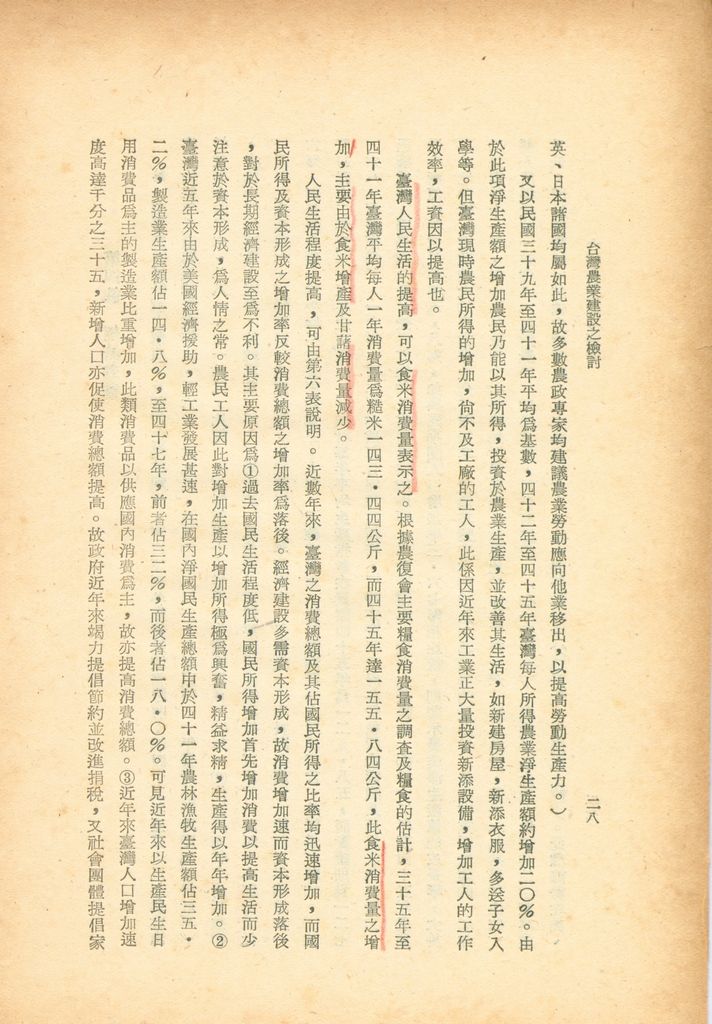 台灣農業建設之檢討
二八
英、日本諸國均屬如此，故多數農政專家均建議農業勞動應向他業移出，以提高勞動生產力。）
又以民國三十九年至四十一年平均爲基數，四十二年至四十五年臺灣每人所得農業淨生產額約增加二〇%。由
於此項淨生產額之增加農民乃能以其所得，投資於農業生產，並改善其生活，如新建房屋，新添衣服，多送子女入
學等。但臺灣現時農民所得的增加，尙不及工廠的工人，此係因近年來工業正大量投資新添設備，增加工人的工作
效率，工資因以提高也。
臺灣人民生活的提高，可以食米消費量表示之。根據農復會主要糧食消費量之調查及糧食的估計，三十五年至
四十一年臺灣平均每人一年消費量爲糙米一四三・四四公斤，而四十五年達一五五・八四公斤，此食米消費量之增
加，主要由於食米增產及甘藷消費量減少。
人民生活程度提高，可由第六表說明。近數年來，臺灣之消費總額及其佔國民所得之比率均迅速增加，而國
民所得及資本形成之增加率反較消費總額之增加率爲落後。經濟建設多需資本形成，故消費增加速而資本形成落後
，對於長期經濟建設至爲不利。其主要原因爲①過去國民生活程度低，國民所得增加首先增加消費以提高生活而少
注意於資本形成，爲人情之常。農民工人因此對增加生產以增加所得極爲興奮，精益求精，生產得以年年增加。②
臺灣近五年來由於美國經濟援助，輕工業發展甚速，在國內淨國民生產總額中於四十一年農林漁牧生產額佔三五・
二%，製造業生產額佔一四・八%，至四十七年，前者佔三二%，而後者佔一八・〇%。可見近年來以生產民生日
用消費品爲主的製造業比重增加，此類消費品以供應國內消費爲主，故亦提高消費總額。③近年來臺灣人口增加速
度高達千分之三十五，新增人口亦促使消費總額提高。故政府近年來竭力提倡節約並改進捐稅，又社會團體提倡家